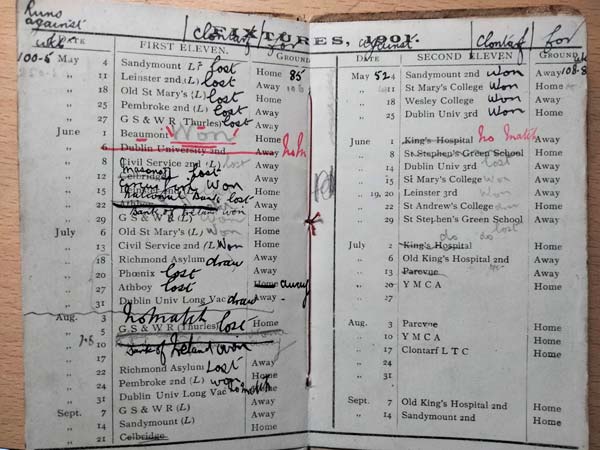 Runs
against
FIXTURES, 1901.
Clontarf for
DATE FIRST ELEVEN. GROUND
100-5 May 4 Sandymount L lost Home 85
" 11 Leinster 2nd (L) lost Away
" 18 Old St Mary's (L) lost Home
" 25 Pembroke 2nd (L) lost Home
" 27 G S & W R (Thurles) lost Away
June 1 Beaumont Won Home
" 6 Dublin University 2nd Home
" 8 Civil Service 2nd (L) lost Away
Masonic lost
" 12 Celbridge
" 15 won Home
National Bank lost
" 22
Bank of Ireland won
" 29 G S & W R (L) Won Home
July 6 Old St Mary's (L) Won Away
" 13 Civil Service 2nd (L) Won Home
" 18 Richmond Asylum draw Home
" 20 Phœnix lost Away
" 27 Athboy lost Home away
" 31 Dublin Univ Long Vac draw Away
Aug. 3 no match
" 5 G S & W R (Thurles) lost Home
" 10
Bank of Ireland won
" 17 Richmond Asylum Lost Away
" 24 Pembroke 2nd (L) Home
" 31 Dublin Univ Long Vac no match Home
Sept. 7 G S & W R (L) Away
" 14 Sandymount (L) Away
" 21 Celbridge Home
against Clontarf for
DATE SECOND ELEVEN GROUND
May 52 4 Sandymount 2nd Won Away 108-8
" 11 St Mary's College Won Home
" 18 Wesley College Won Away
" 25 Dublin Univ 3rd Won Home
June 1 King's Hospital no match Away
" 8 St Stephen's Green School Home
" 14 Dublin Univ 3rd lost Away
" 15 St Mary's College Won Away
" 19, 20 Leinster 3rd Won Away
" 22 St Andrew's College Home
" 29 St Stephen's Green School lost Away
do do
July 2 King's Hospital Home
" 6 Old King's Hospital 2nd Away
" 13 Parevne Away
" 20 Y M C A Home
" 27 Away
Aug. 3 Parevne Home
" 10 Y M C A Home
" 17 Clontarf L T C Home
" 24
" 31
Sept. 7 Old King's Hospital 2nd Home
" 14 Sandymount 2nd Home